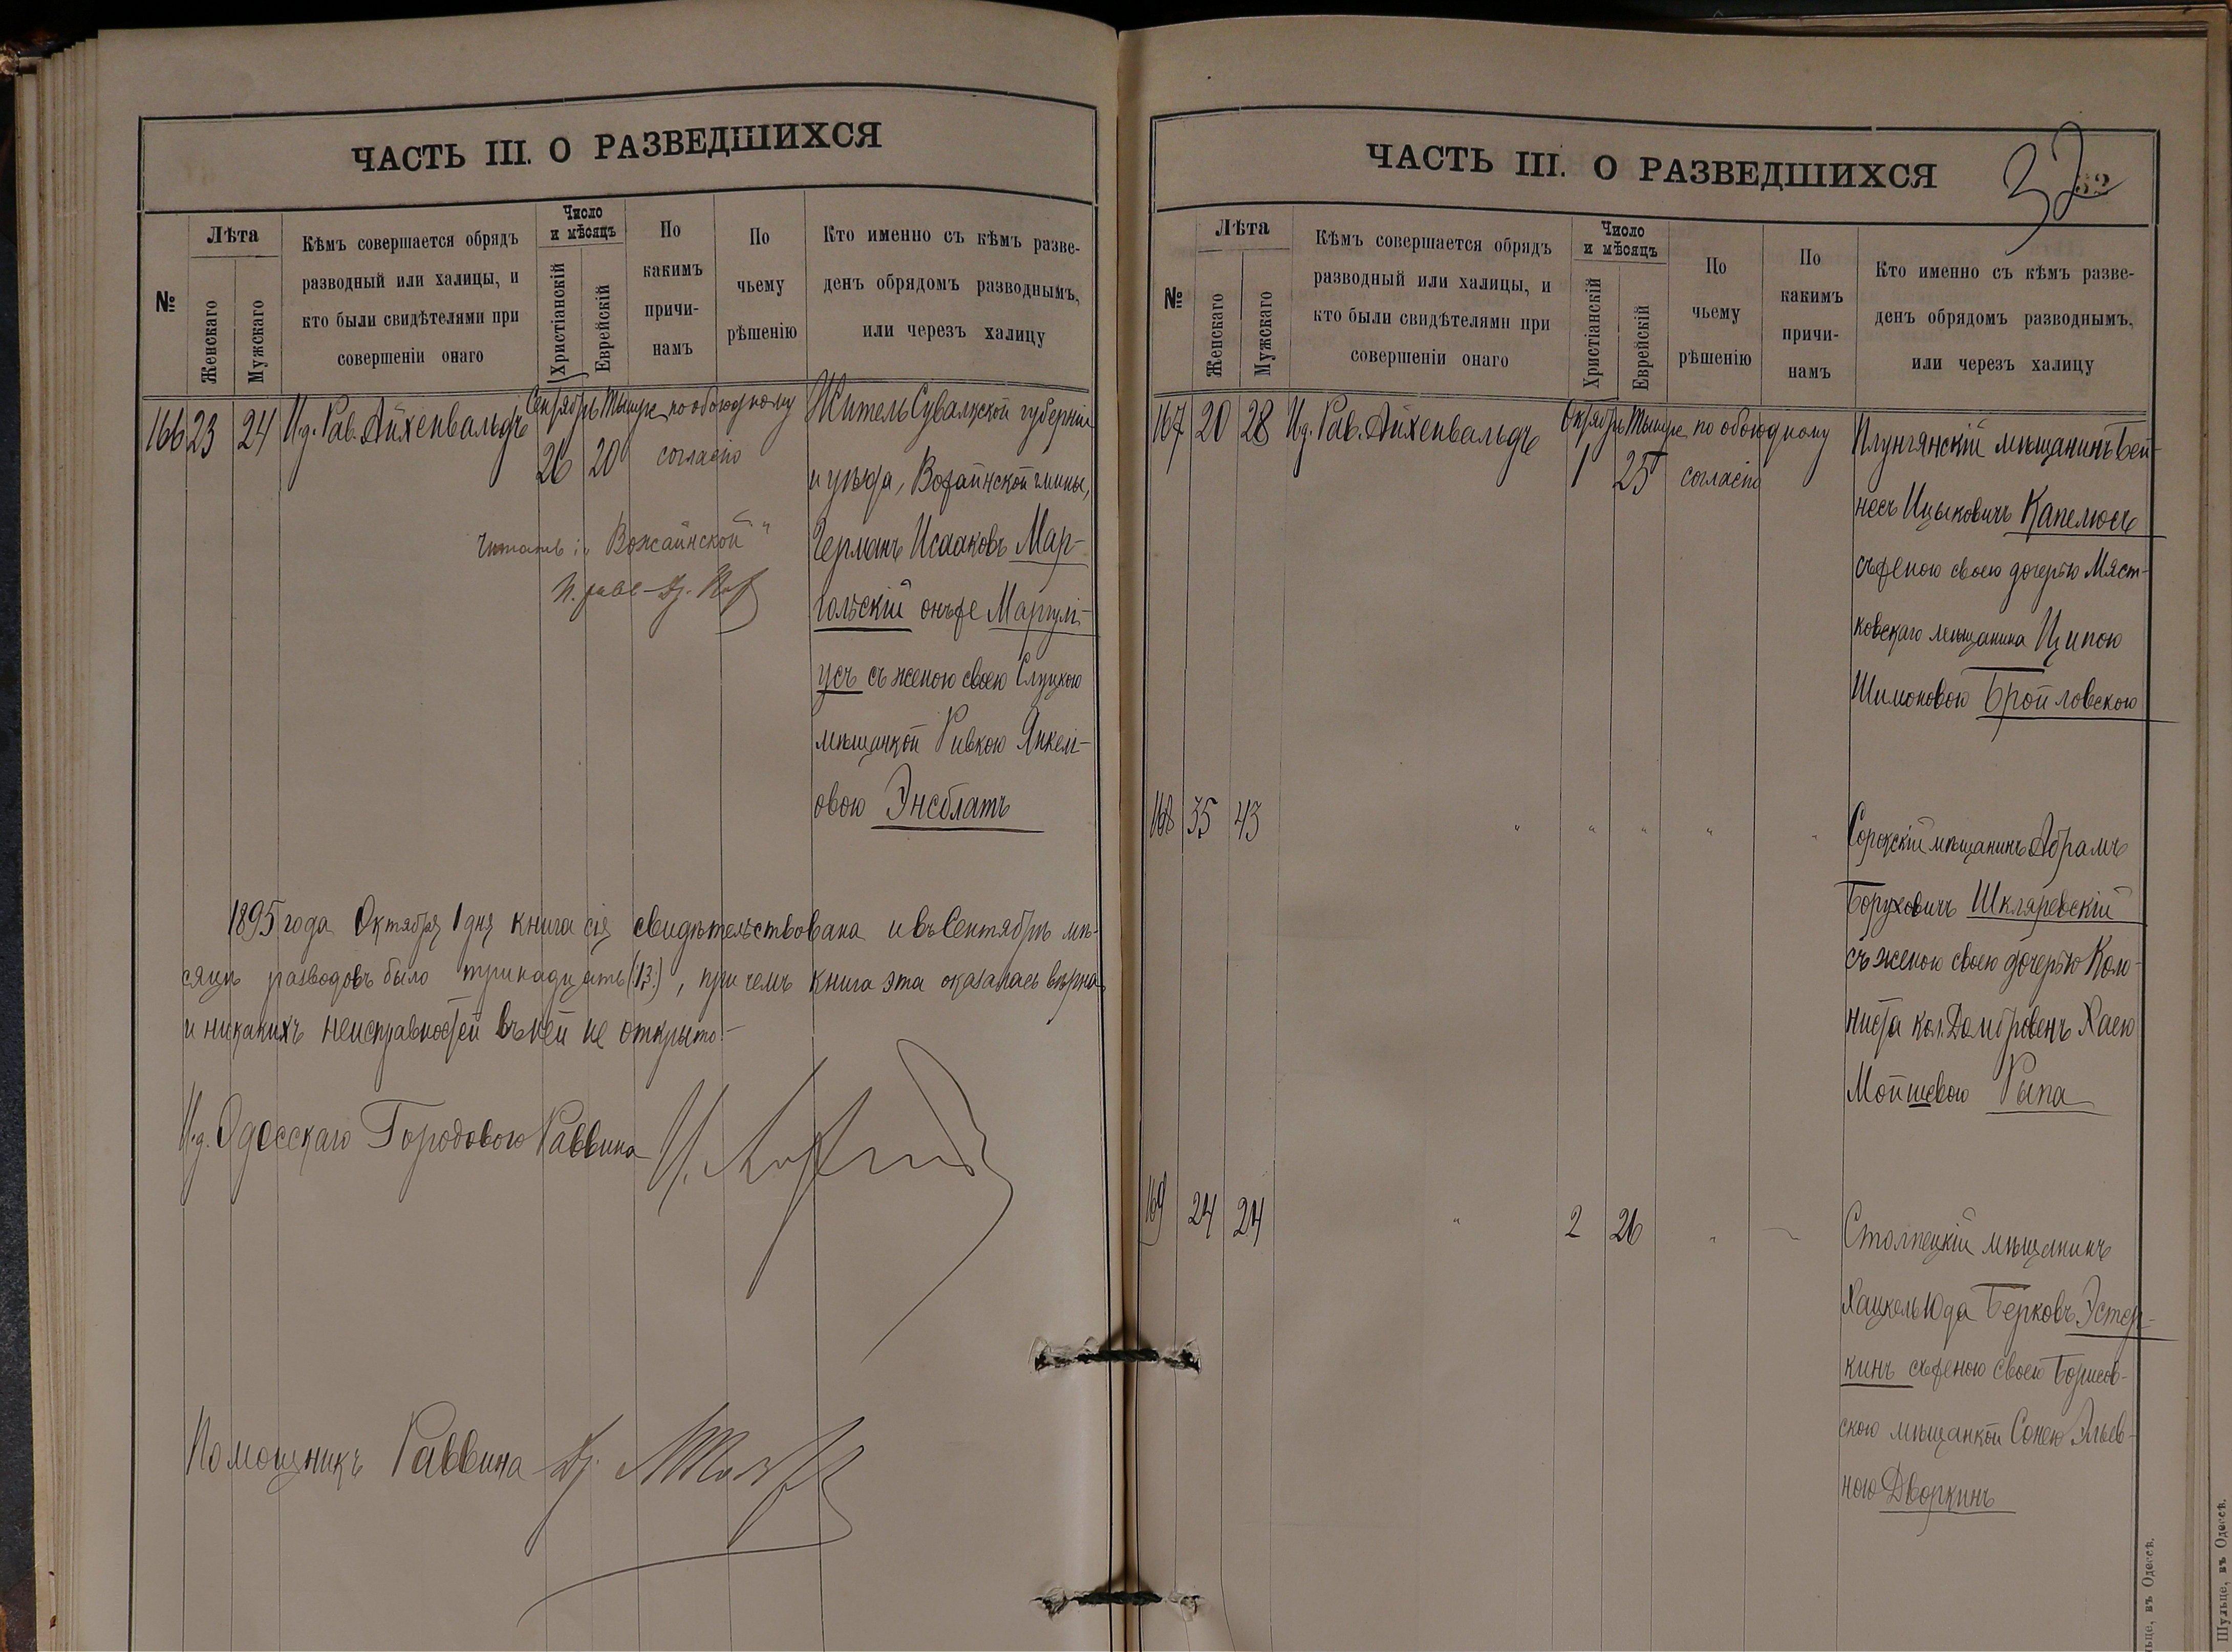 ЧАСТЬ III. О РАЗВЕДШИХСЯ
№
Лѣта
Женскаго
Мужскаго
Кѣмъ совершается обрядъ
разводный или халицы, и
кто были свидѣтелями при
совершеніи онаго
Число
и мѣсяцъ
Христіанскій
Еврейскій
По
какимъ
причи-
намъ
По
чьему
рѣшенію
Кто именно съ кѣмъ разве-
денъ обрядомъ разводнымъ,
или черезъ халицу
166 23 24 И.д. Рав. Айхенвальдъ
Сентябрь Тышре по обоюдному
26 20 согласію
Житель Сувалкской губерніи
и уѣзда, Возайнской гмины,
Германъ Исааковъ Мар-
гольскій онъ же Маргулі-
усъ съ женою своею Слуцкою
мѣщанкой Ривкою Янкелі-
овою Энсблатъ
Читать: „Вожайнской"
1895 года Октября 1 дня книга сія свидѣтельствована и въ Сентябрѣ мѣ-
сяцѣ разводовъ было тринадцать (13.), при чемъ книга эта оказалась вѣрна
и никакихъ неисправностей въ ней не открыто.-
И.д. Одесскаго Городового Раввина
Помощникъ Раввина
ЧАСТЬ III. О РАЗВЕДШИХСЯ
32
32
№
Лѣта
Женскаго
Мужскаго
Кѣмъ совершается обрядъ
разводный или халицы, и
кто были свидѣтелями при
совершеніи онаго
Число
и мѣсяцъ
Христіанскій
Еврейскій
По
чьему
рѣшенію
По
какимъ
причи-
намъ
Кто именно съ кѣмъ разве-
денъ обрядомъ разводнымъ,
или черезъ халицу
167 20 28 И.д. Рав. Айхенвальдъ
Октябрь Тышре по обоюдному
1 25 согласію
Плунгянскій мѣщанинъ Бей-
несъ Ицыковичъ Капелюсъ
съ женою своею дочерью Мяст-
ковскаго мѣщанина Ципою
Шимоновою Бройловскою
168 35 43 " " " " "
Сорокскій мѣщанинъ Абрамъ
Боруховичъ Шкляревскій
съ женою своею дочерью Коло-
ниста кол. Домбровенъ Хаею
Мойшевою Рыпа
169 24 24 " 2 26 "
Столпецкій мѣщанинъ
Хацкель Юда Берковъ Эстер-
кинъ съ женою своею Борисов-
скою мѣщанкой Сонею Эльев-
ною Дворкинъ
льце, въ Одессѣ.
Шульце, въ Одессѣ.